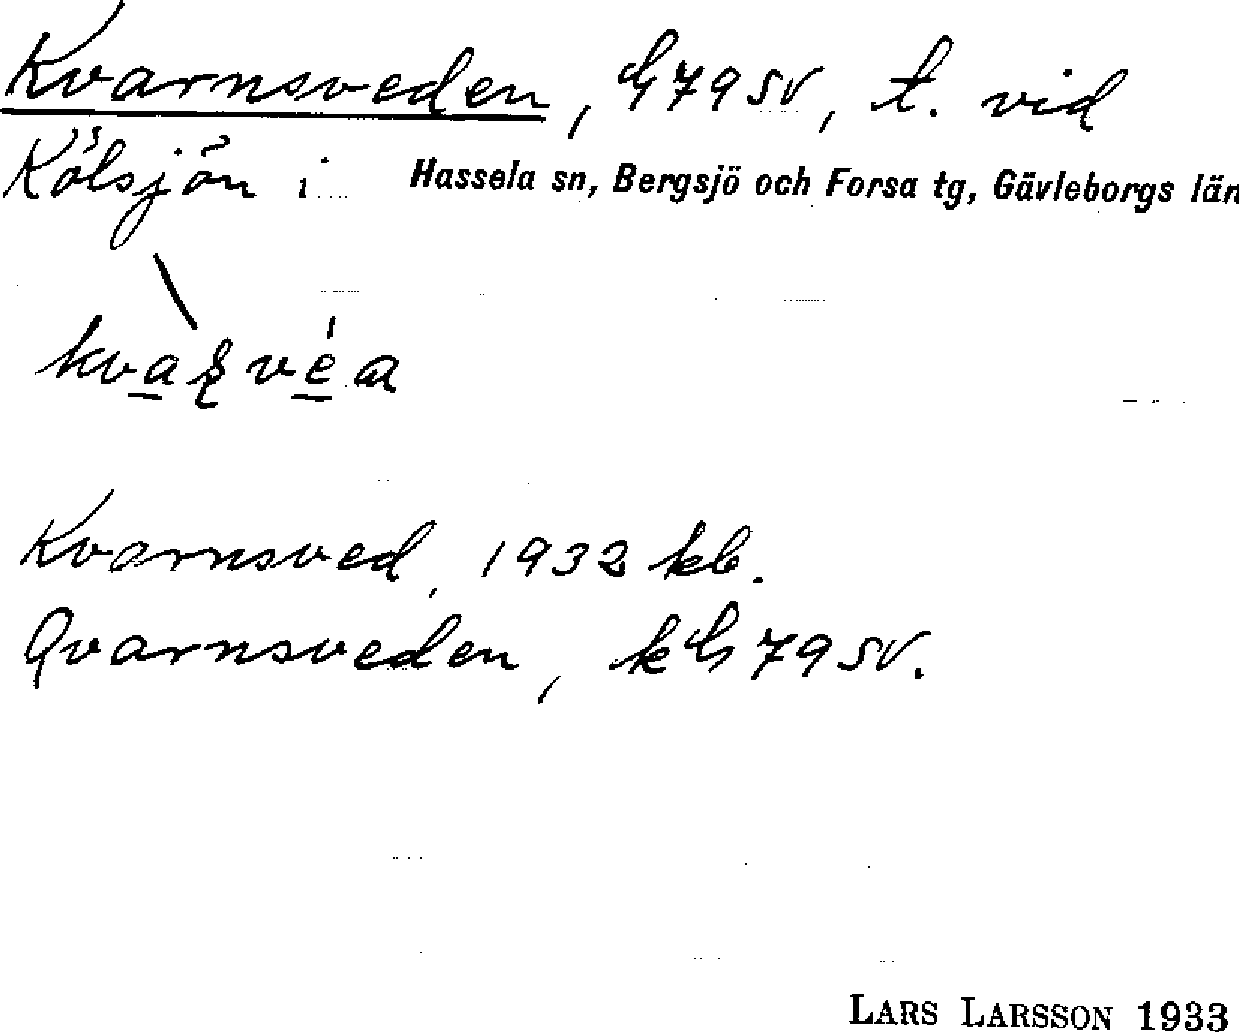 Kvarnsveden, G 79 SV, t. vid
Kölsjön i Hassela sn, Bergsjö och Forsa tg, Gävleborgs län
Kvarnsved, 1932 kb.
Qvarnsveden, k G 79 SV.
LARS LARSSON 1933